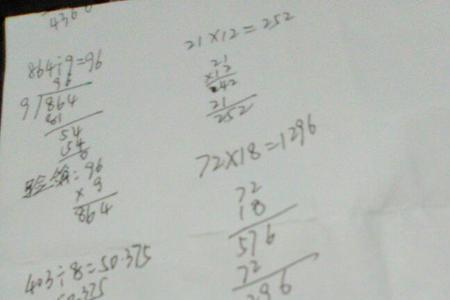 864÷9=96
96
9√864
81
54
54
0
验算: 96
× 9
864
403÷8=50.375
50.375
21×12=252
21
×12
42
21
252
72×18=1296
72
18
576
72